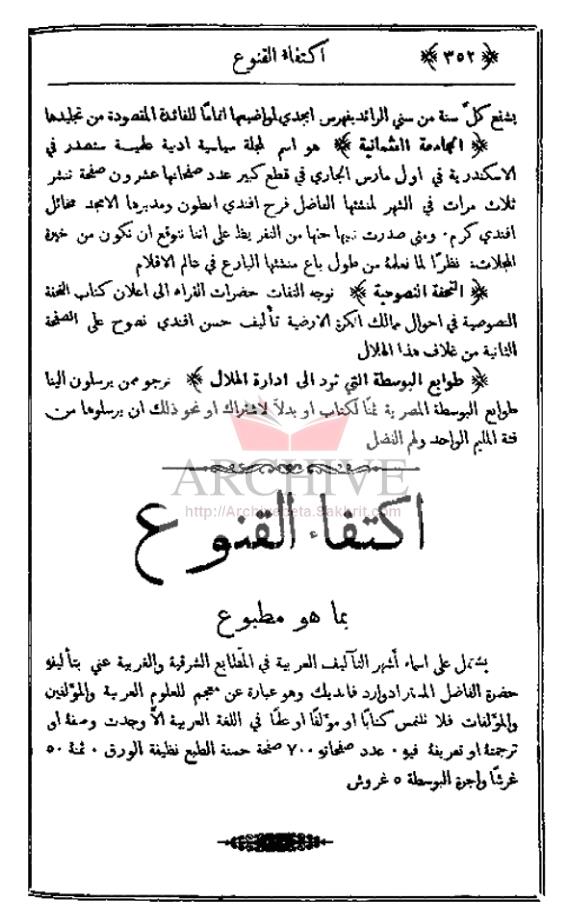 ﴿ ٣٥٢ ﴾ اكتفاء القنوع
يشفع كلّ سنة من سني الرائد بفهرس ابجدي لمواضيعها اتمامًا للفائدة المقصودة من تجليدها
﴿ الجامعة العثمانية ﴾ هو اسم لمجلة سياسية ادبية علمية ستصدر في
الاسكندرية في اول مارس الجاري في قطع كبير عدد صفحاتها عشرون صفحة تنشر
ثلاث مرات في الشهر لمنشئها الفاضل فرح افندي انطون ومديرها الامجد مخائل
افندي كرم. ومتى صدرت نبيها حقها من التقريظ على اننا نتوقع ان تكون من خيرة
المجلات نظرًا لما نعلمهُ من طول باع منشئها البارع في عالم الاقلام
﴿ التحفة النصوحية ﴾ نوجه التفات حضرات القراء الى اعلان كتاب التحفة
النصوحية في احوال ممالك الكرة الارضية تأليف حسن افندي نصوح على الصفحة
الثانية من غلاف هذا الهلال
﴿ طوابع البوسطة التي ترد الى ادارة الهلال ﴾ نرجو ممن يرسلون الينا
طوابع البوسطة المصرية ثمنًا لكتاب او بدلاً لاشتراك او نحو ذلك ان يرسلوها من
فئة المليم الواحد ولهم الفضل
ARCHIVE
http://Archivebeta.Sakhrit.com
اكتفاء القنوع
بما هو مطبوع
يشتمل على اسماء أشهر التآليف العربية في المطابع الشرقية والغربية عني بتأليفهِ
حضرة الفاضل المستر ادوارد فانديك وهو عبارة عن معجم للعلوم العربية والمؤلفين
والمؤلفات فلا تلتمس كتابًا او مؤلفًا او علمًا في اللغة العربية الاّ وجدت وصفهُ او
ترجمتهُ او تعريفهُ فيهِ. عدد صفحاتهِ ٧٠٠ صفحة حسنة الطبع نظيفة الورق. ثمنهُ ٥٠
غرشًا واجرة البوسطة ٥ غروش